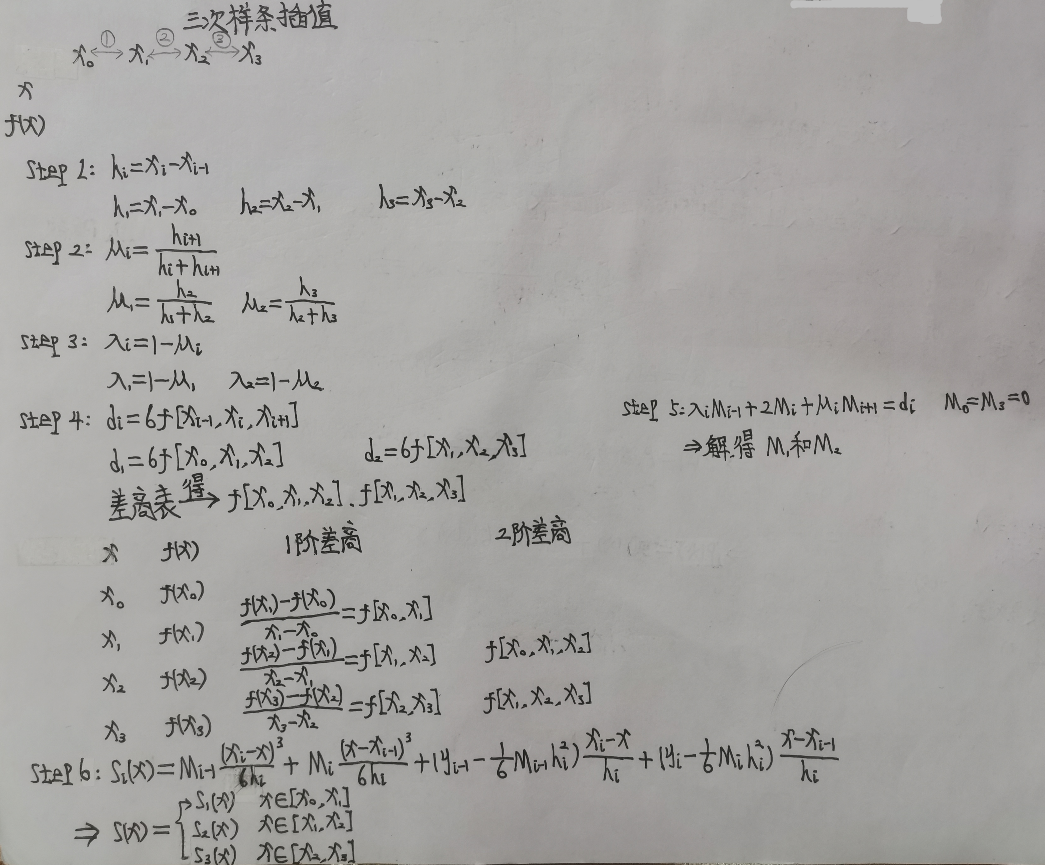 三次样条插值
① ② ③
x₀ ↔ x₁ ↔ x₂ ↔ x₃
x
f(x)
Step 1: hᵢ=xᵢ-xᵢ₋₁
h₁=x₁-x₀ h₂=x₂-x₁ h₃=x₃-x₂
Step 2: μᵢ=hᵢ₊₁/(hᵢ+hᵢ₊₁)
μ₁=h₂/(h₁+h₂) μ₂=h₃/(h₂+h₃)
Step 3: λᵢ=1-μᵢ
λ₁=1-μ₁ λ₂=1-μ₂
Step 4: dᵢ=6f[xᵢ₋₁,xᵢ,xᵢ₊₁]
d₁=6f[x₀,x₁,x₂] d₂=6f[x₁,x₂,x₃]
差商表 得→ f[x₀,x₁,x₂]、f[x₁,x₂,x₃]
x f(x) 1阶差商 2阶差商
x₀ f(x₀)
x₁ f(x₁) (f(x₁)-f(x₀))/(x₁-x₀)=f[x₀,x₁]
x₂ f(x₂) (f(x₂)-f(x₁))/(x₂-x₁)=f[x₁,x₂] f[x₀,x₁,x₂]
x₃ f(x₃) (f(x₃)-f(x₂))/(x₃-x₂)=f[x₂,x₃] f[x₁,x₂,x₃]
Step 5: λᵢMᵢ₋₁+2Mᵢ+μᵢMᵢ₊₁=dᵢ M₀=M₃=0
⇒解得 M₁和M₂
Step 6: Sᵢ(x)=Mᵢ₋₁(xᵢ-x)³/6hᵢ + Mᵢ(x-xᵢ₋₁)³/6hᵢ + (yᵢ₋₁-1/6Mᵢ₋₁hᵢ²)(xᵢ-x)/hᵢ + (yᵢ-1/6Mᵢhᵢ²)(x-xᵢ₋₁)/hᵢ
⇒ S(x)={ S₁(x) x∈[x₀,x₁]
S₂(x) x∈[x₁,x₂]
S₃(x) x∈[x₂,x₃]